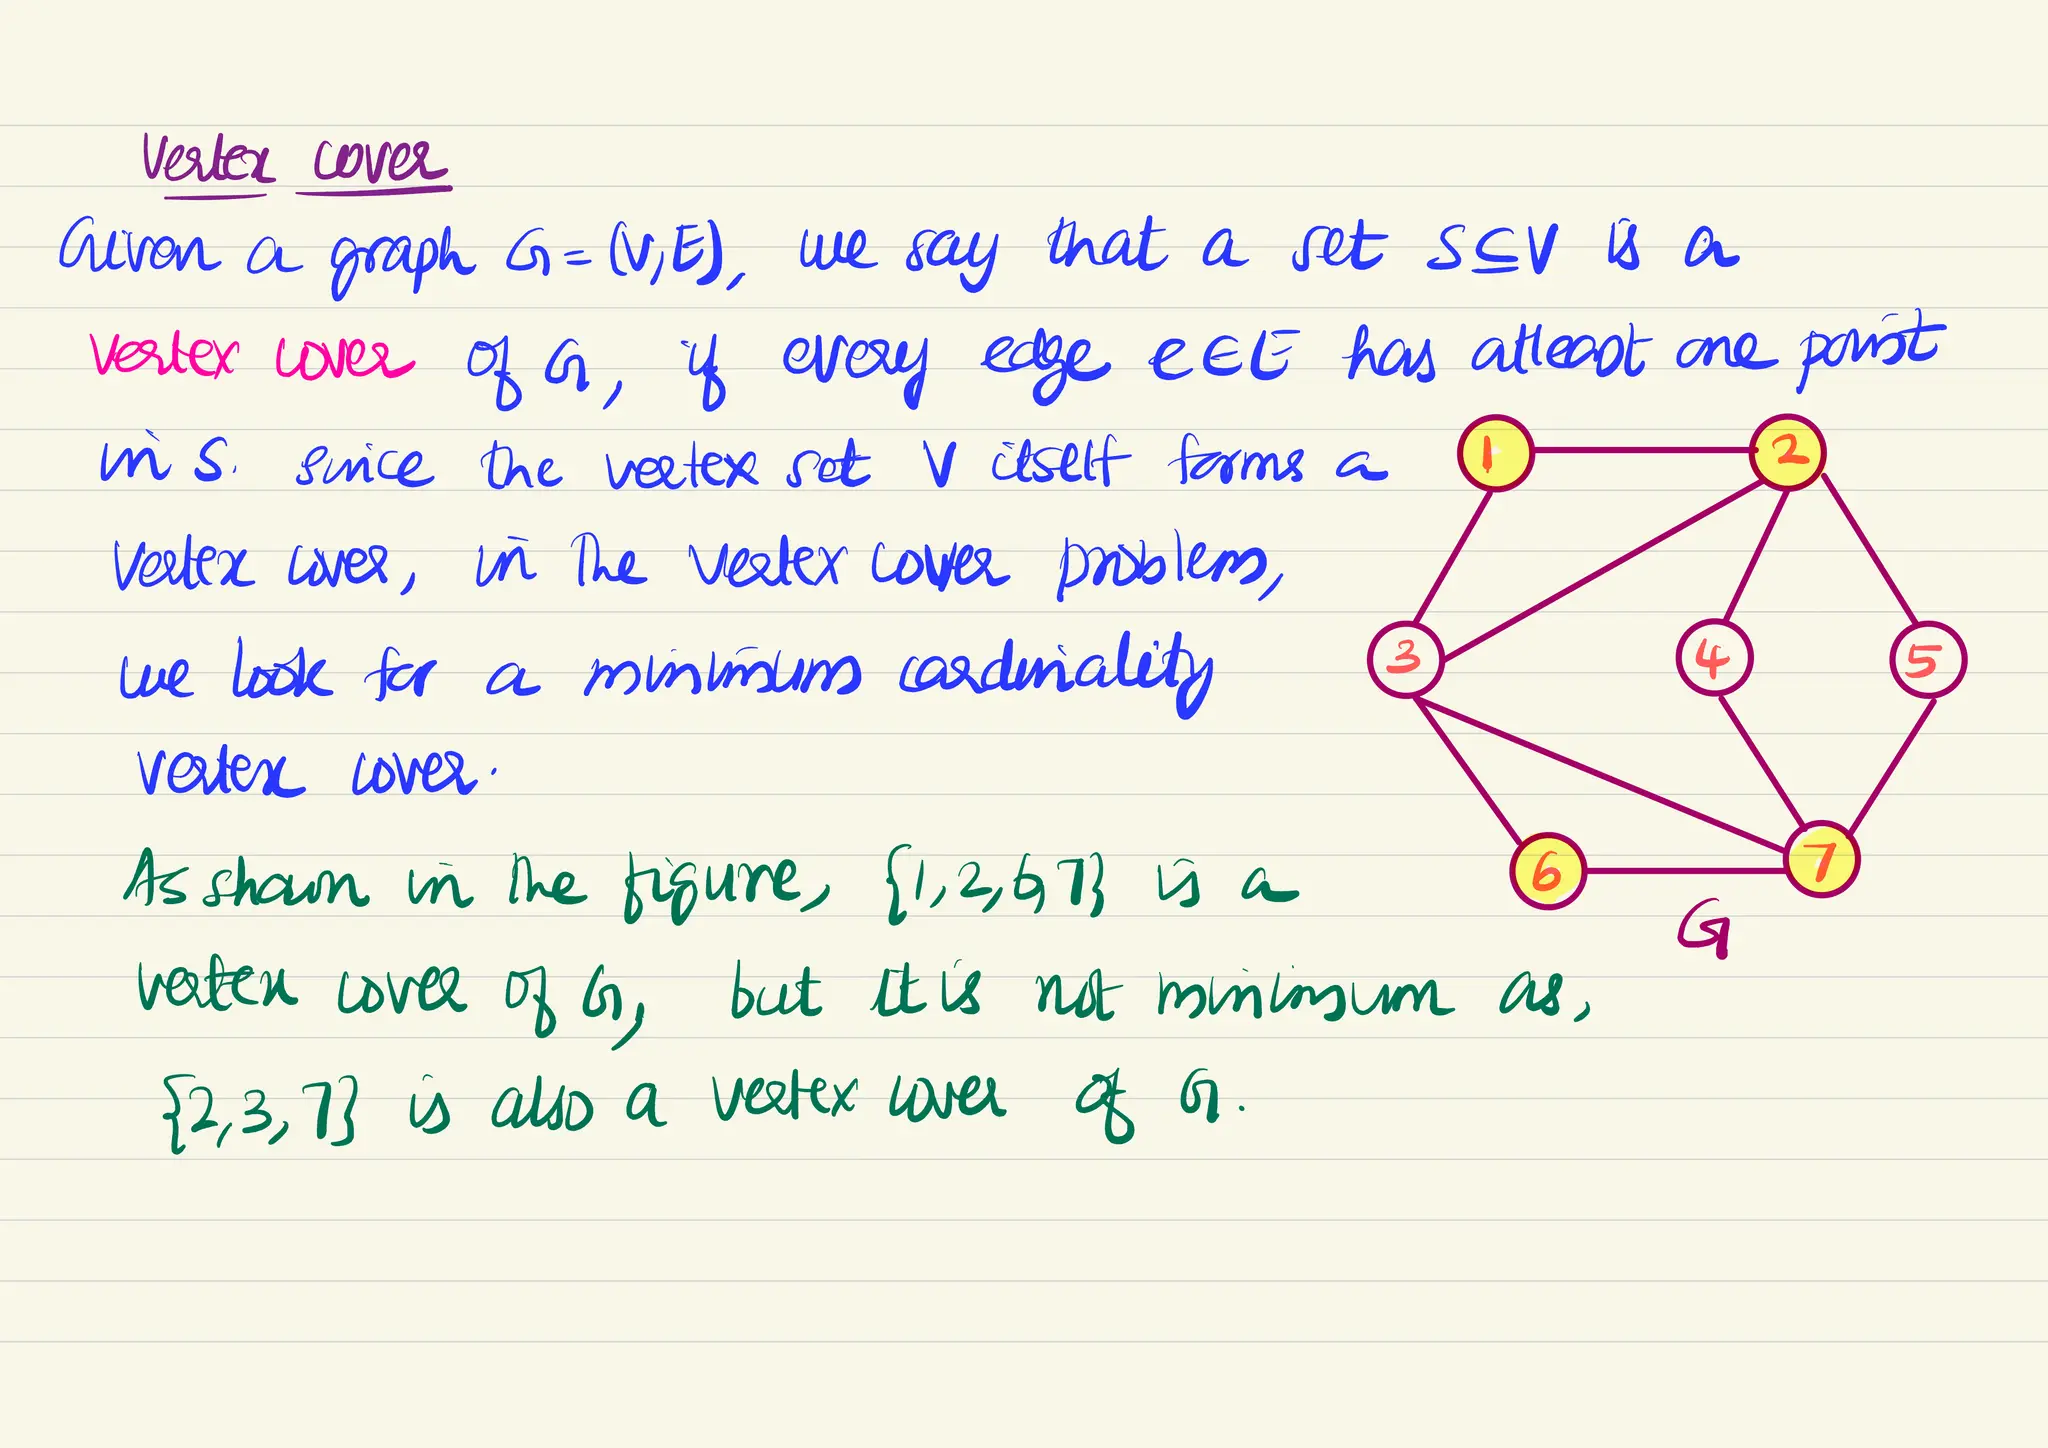 Vertex cover
Given a graph G = (V,E), we say that a set S⊆V is a
vertex cover of G, if every edge e∈E has atleast one point
in S. since the vertex set V itself forms a
vertex cover, in the vertex cover problem,
we look for a minimum cardinality
vertex cover.
As shown in the figure, {1,2,6,7} is a
vertex cover of G, but it is not minimum as,
{2,3,7} is also a vertex cover of G.
1 2
3 4 5
6 7
G